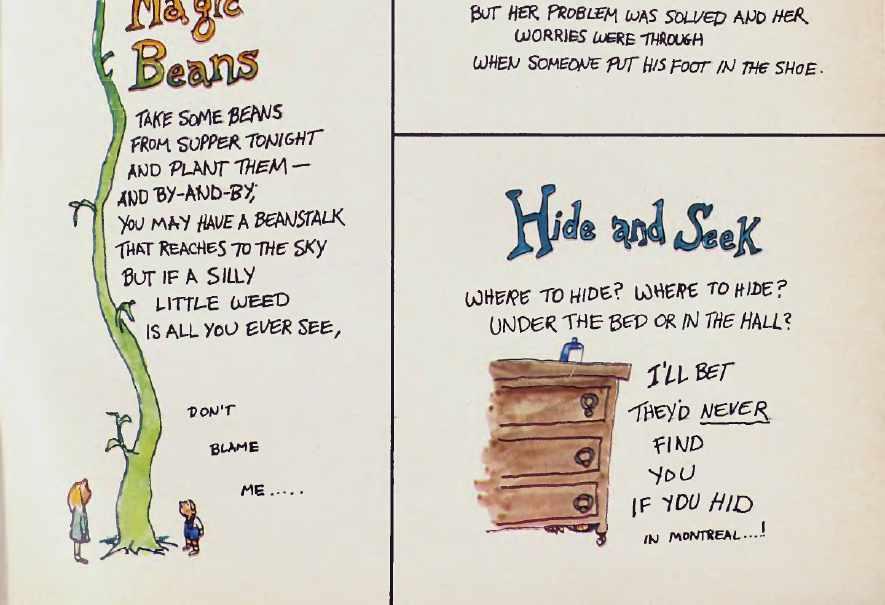 Magic
Beans
TAKE SOME BEANS
FROM SUPPER TONIGHT
AND PLANT THEM —
AND BY-AND-BY,
YOU MAY HAVE A BEANSTALK
THAT REACHES TO THE SKY
BUT IF A SILLY
LITTLE WEED
IS ALL YOU EVER SEE,
DON'T
BLAME
ME.....
BUT HER PROBLEM WAS SOLVED AND HER
WORRIES WERE THROUGH
WHEN SOMEONE PUT HIS FOOT IN THE SHOE.
Hide and Seek
WHERE TO HIDE? WHERE TO HIDE?
UNDER THE BED OR IN THE HALL?
I'LL BET
THEY'D NEVER
FIND
YOU
IF YOU HID
IN MONTREAL...!